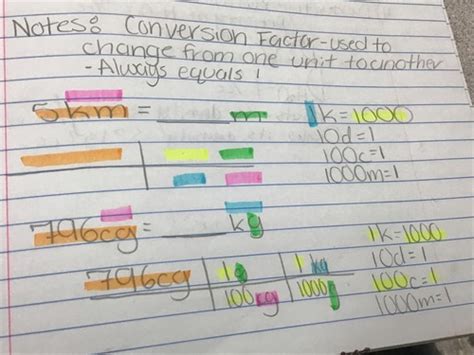 Notes: Conversion Factor-used to
change from one unit to another
- Always equals 1
5km = ____ m
1k=1000
10d=1
100c=1
1000m=1
796cg = ____ kg
796cg | 1g | 1kg
100cg | 1000g
1k=1000
10d=1
100c=1
1000m=1